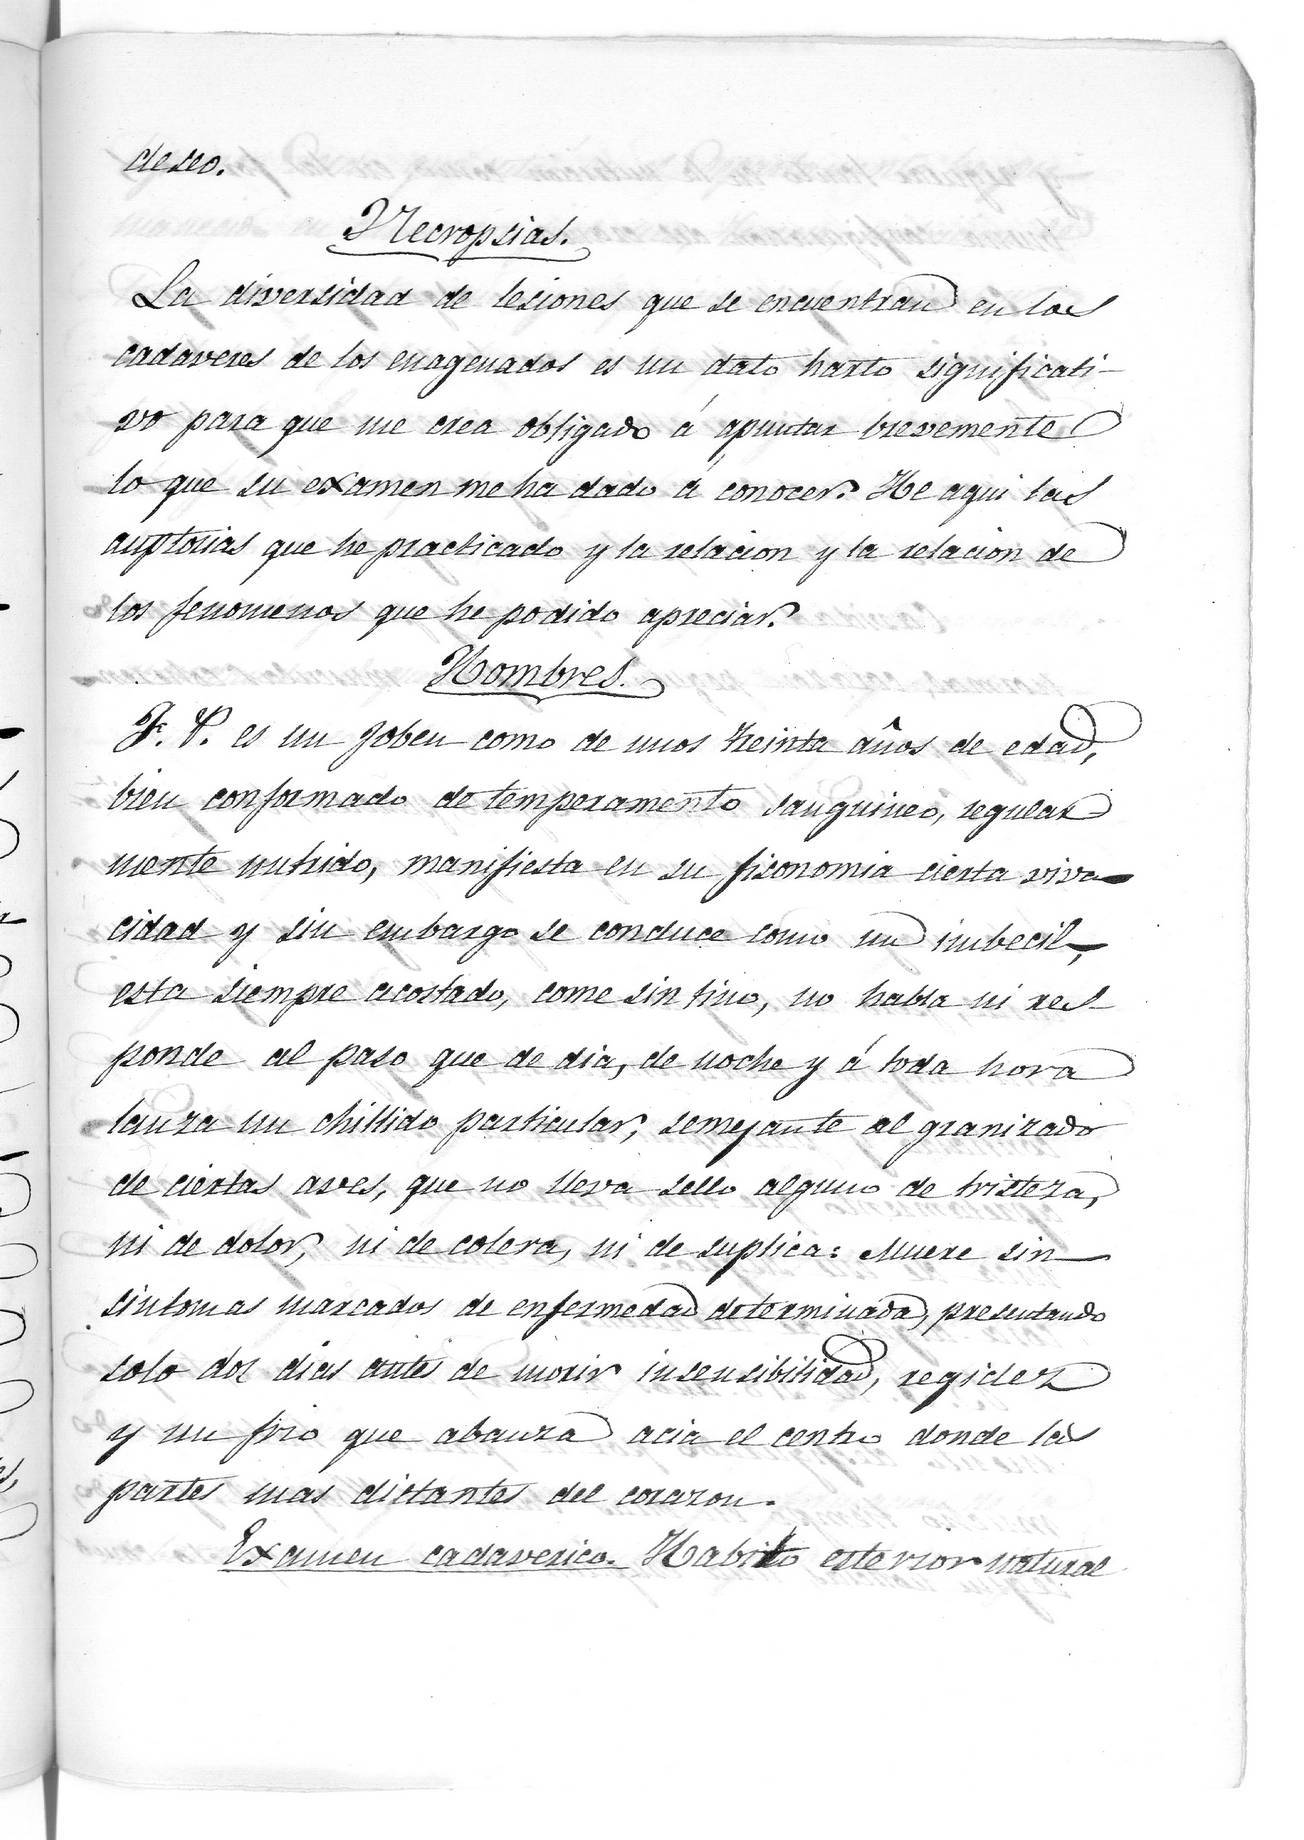 deseo.
Necropsias.
La diversidad de lesiones que se encuentran en los
cadaveres de los enagenados es un dato harto significati-
vo para que me crea obligado á apuntar brevemente
lo que su examen me ha dado á conocer. He aqui las
auptosias que he practicado y la relacion y la relacion de
los fenomenos que he podido apreciar.
Hombres.
F. P. es un joben como de unos treinta años de edad,
bien conformado de temperamento sanguineo, regular
mente nutrido, manifiesta en su fisonomia cierta viva-
cidad y sin embargo se conduce como un imbecil,
esta siempre acostado, come sin tino, no habla ni res-
ponde al paso que de dia, de noche y á toda hora
lanza un chillido particular, semejante al granizado
de ciertas aves, que no lleva sello alguno de tristeza,
ni de dolor, ni de colera, ni de suplica: Muere sin
sintomas marcados de enfermedad determinada, presentando
solo dos dias antes de morir insensibilidad, regidez
y un frio que abanza acia el centro donde las
partes mas distantes del corazon.
Examen cadaverico. Habito esterior natural